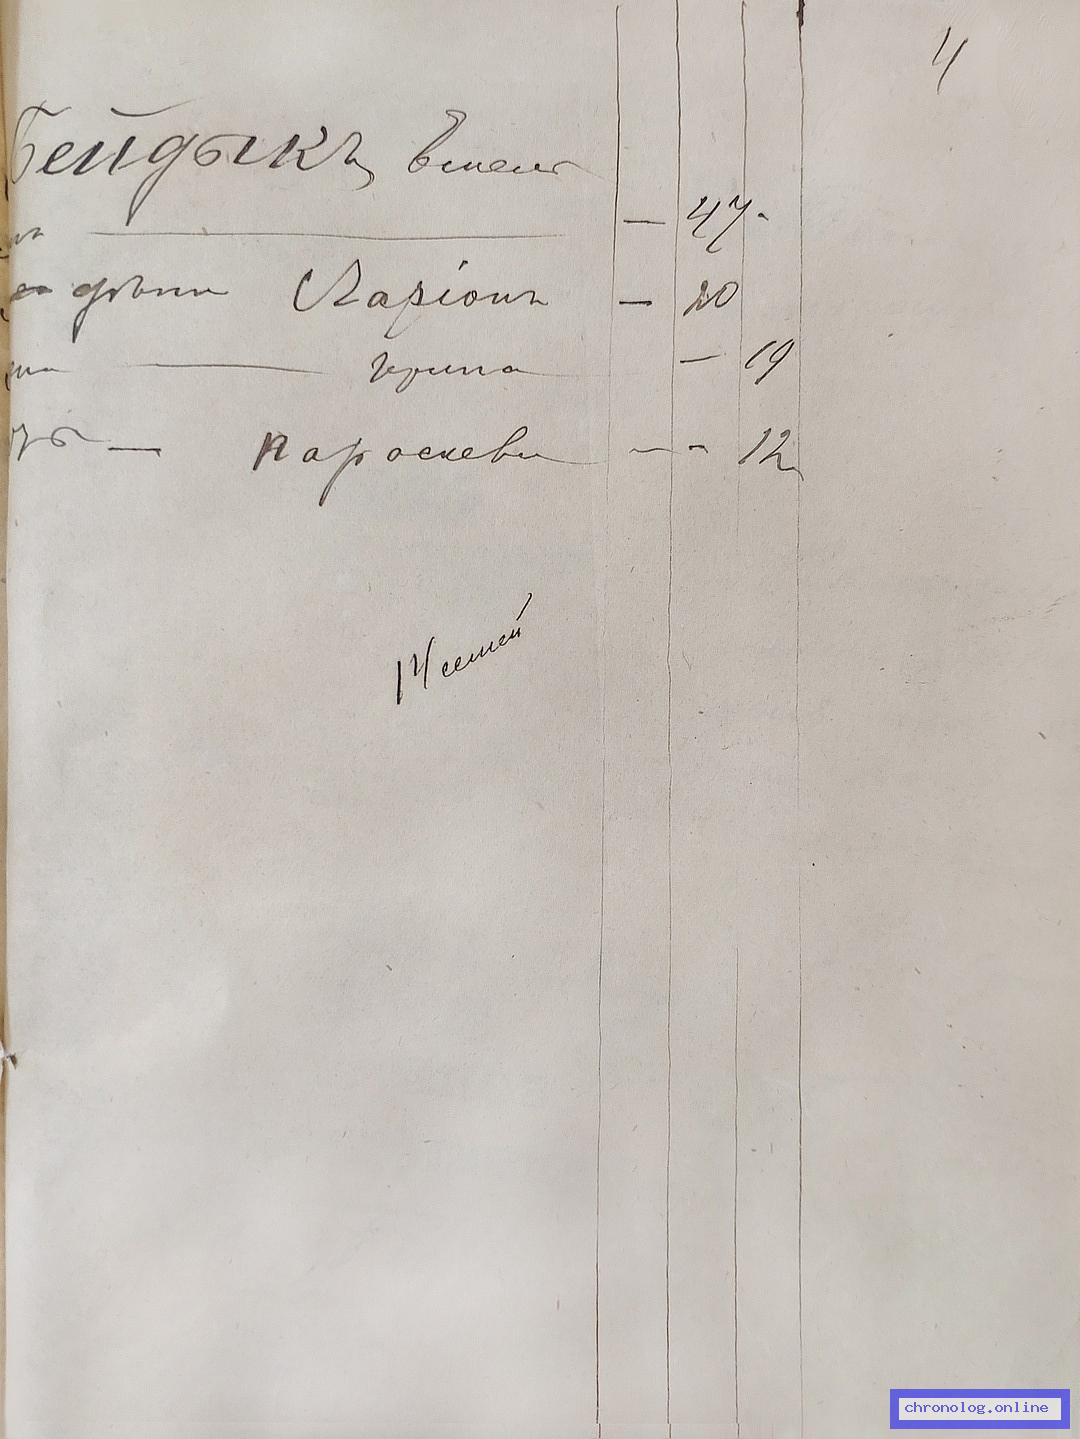 4
Бейдыкъ
— 47
Ларіонъ — 20
Ирина — 19
— Пароскева — - 12
14 семей
chronolog.online